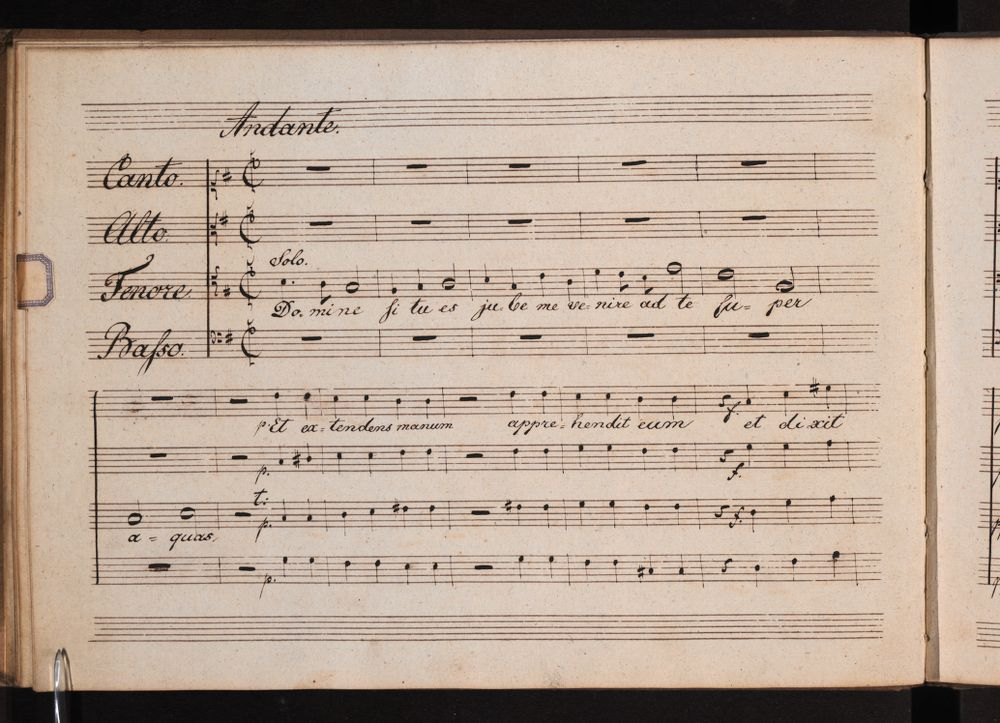 Andante.
Canto.
Alto.
Solo.
Tenore.
Do. mine si tu es ju. be me ve. nire ad te su= per
Basso.
p. Et ex=tendens manum appre=hendit eum f. et dixit
p. f.
t.
p. f.
a = quas.
p.